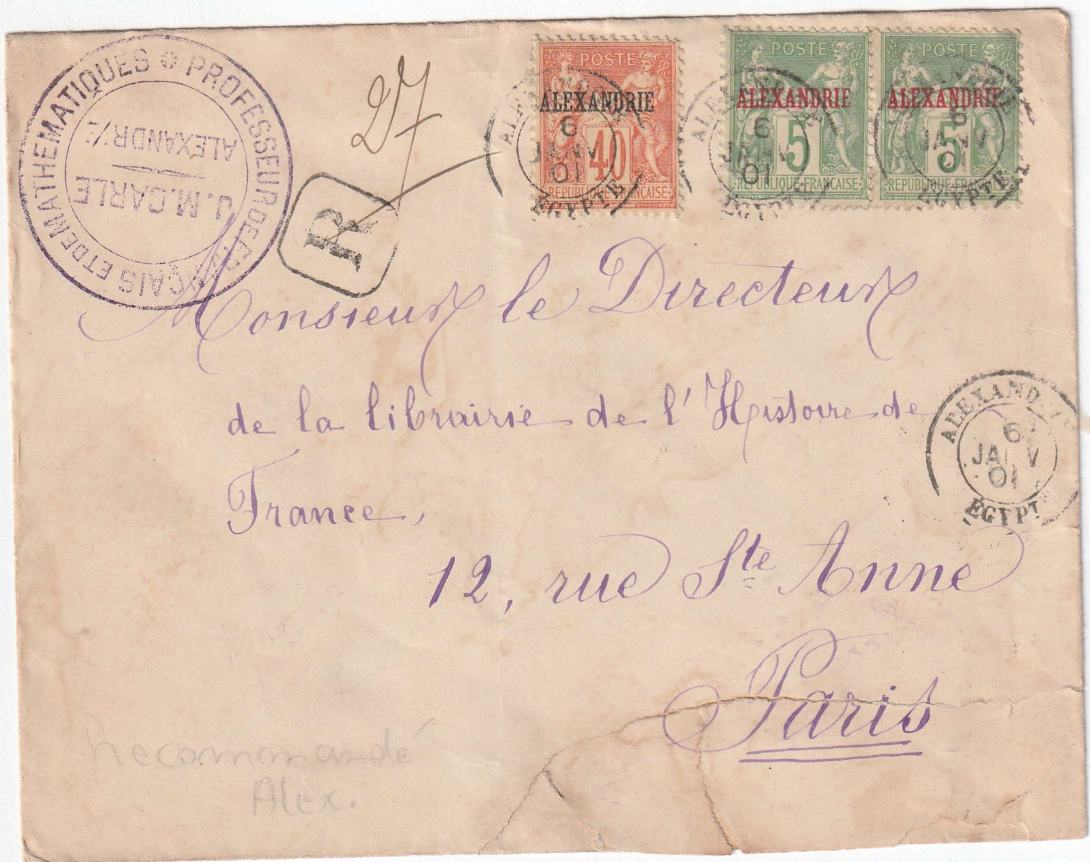 PROFESSEUR DE FRANÇAIS ET DE MATHÉMATIQUES
J. M. CARLE
ALEXANDRIE
27
R
POSTE
ALEXANDRIE
40
REPUBLIQUE FRANÇAISE
ALEXANDRIE
6
JANV
01
EGYPTE
POSTE
ALEXANDRIE
5
REPUBLIQUE FRANÇAISE
ALEXANDRIE
6
JANV
01
EGYPTE
POSTE
ALEXANDRIE
5
REPUBLIQUE FRANÇAISE
6
JANV
01
EGYPTE
Monsieur le Directeur
de la librairie de l'Histoire de
France,
12, rue Ste Anne
Paris
ALEXANDRIE
6
JANV
01
EGYPTE
Recommandé
Alex.